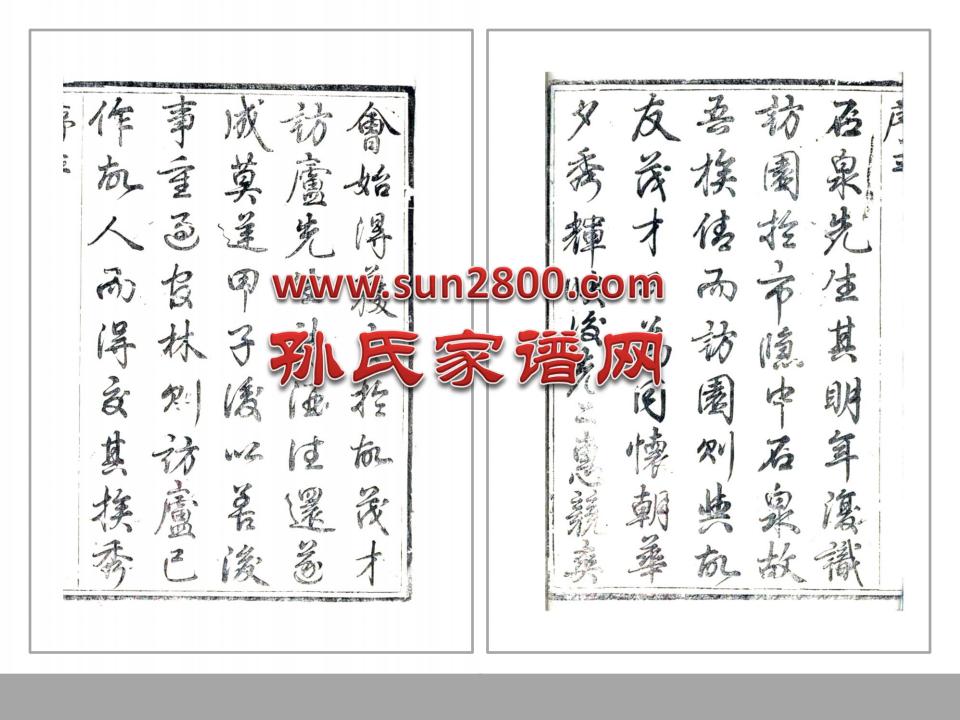 序三
石泉先生其明年復識
訪園於市隱中石泉故
吾族倩而訪園則與故
友茂才同懷朝華
夕秀輝後先二惠競爽
會始得於故茂才
訪廬先酒往還遂
成莫逆甲子後以善後
事重過官林則訪廬已
作故人而得交其族秀
序三
www.sun2800.com
孙氏家谱网